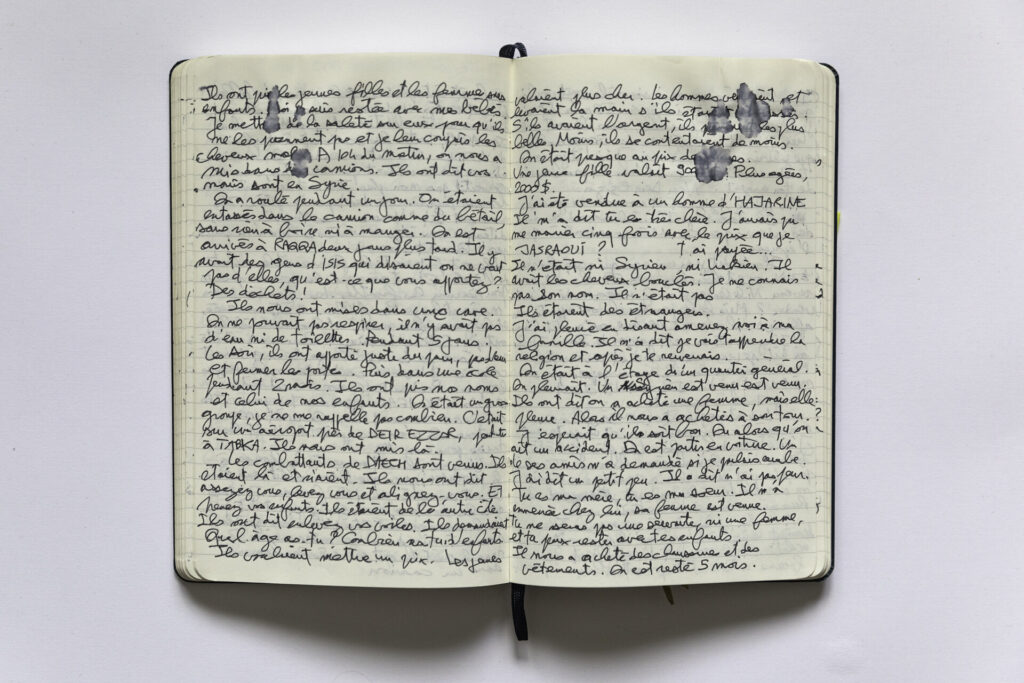 Ils ont pris les jeunes filles et les femmes sans
enfants. suis restée avec mes bébés.
Je de la saleté sur eux pour qu'ils
ne les prennent pas et je leur coupais les
cheveux A 10h du matin, on nous a
mis dans camions. Ils ont dit vos
maris sont en Syrie.
On a roulé pendant un jour. On étaient
entassés dans le camion comme du bétail,
sans rien à boire ni à manger. On est
arrivés à RAQQA deux jours plus tard. Il y
avait des gens d'ISIS qui disaient on ne veut
pas d'elles, qu'est-ce que vous apportez ?
Des déchets !
Ils nous ont mises dans une cave.
On ne pouvait pas respirer, il n'y avait pas
d'eau ni de toilettes. Pendant 5 jours.
Les soir, ils ont apporté juste du pain,
et fermer les portes. Puis dans une école
pendant 2 mois. Ils ont pris nos noms
et celui de nos enfants. On était un gros
groupe, je ne me rappelle pas combien. C'était
sur un aéroport près de DEIR EZZOR,
à TABKA. Ils nous ont mis là.
Les combattants de DAECH sont venus. Ils
étaient là et riaient. Ils nous ont dit
asseyez vous, levez vous et alignez-vous. Et
prenez vos enfants. Ils étaient de l'autre côté.
Ils ont dit enlevez vos voiles. Ils demandaient
Quel âge as-tu ? Combien as tu d'enfants
Ils voulaient mettre un prix. Les jeunes
valaient plus cher. Les hommes et
levaient la main s'ils
S'ils avaient l'argent, ils les plus
belles. Moins, ils se contentaient de moins.
On était presque au prix de
Une jeune fille valait Plus agées,
2000 $.
J'ai été vendue à un homme d'HAJARINE
Il m'a dit tu es très chère. J'aurais pu
me marier cinq fois avec le prix que je
JASRAOUI ? T'ai payée...
Il n'était ni Syrien ni Irakien. Il
avait les cheveux bouclés. Je ne connais
pas son nom. Il n'était pas
Ils étaient des étrangers.
J'ai pleuré en disant amenez moi à ma
famille. Il m'a dit je vais t'apprendre la
religion et après je te
On était à l'étage d'un quartier général.
On pleurait. Un est venu est venu.
Ils ont dit on a acheté une femme, mais elle
pleure. Alors il nous a achetés à son tour.
J'espérait qu'il soit bon. Ou alors qu'on
ait un accident. On est partis en voiture. Un
de ses amis m'a demandé si je parlais arabe.
J'ai dit un petit peu. Il a dit n'ai pas peur.
Tu es ma mère, tu es ma soeur. Il m'a
emmenée chez lui, sa femme est venue.
Tu ne seras pas une servante, ni une femme,
et tu peux rester avec tes enfants.
Il nous a acheté des chaussures et des
vêtements. On est resté 5 mois.